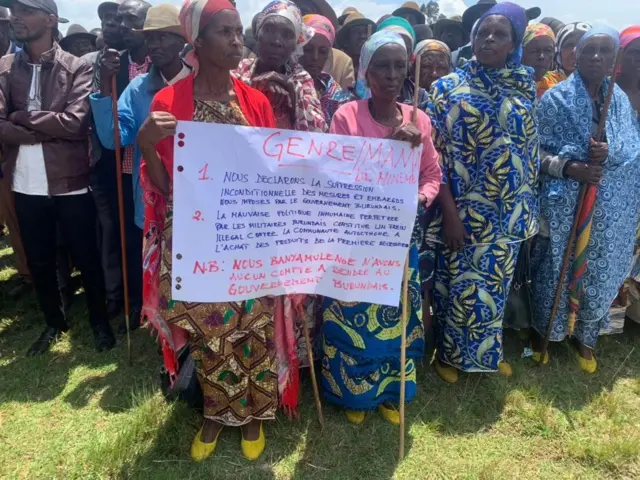 GENRE/MAMA
DE MINEMBWE
1. NOUS DECLARONS LA SUPPRESSION
INCONDITIONELLE DES MESURES ET EMBARGOS
NOUS IMPOSÉS PAR LE GOUVERNEMENT BURUNDAIS.
2. LA MAUVAISE POLITIQUE INHUMAINE PERPETRER
PAR LES MILITAIRES BURUNDAIS CONSTITUE UN FREIN
ILLEGAL CONTRE LA COMMUNAUTE AUTOCHTONE A
L'ACHAT DES PRODUITS DE LA PREMIÈRE NECESSITE
N.B: NOUS BANYAMULENGE N'AVONS
AUCUN COMPTE A RENDRE AU
GOUVERNEMENT BURUNDAIS.